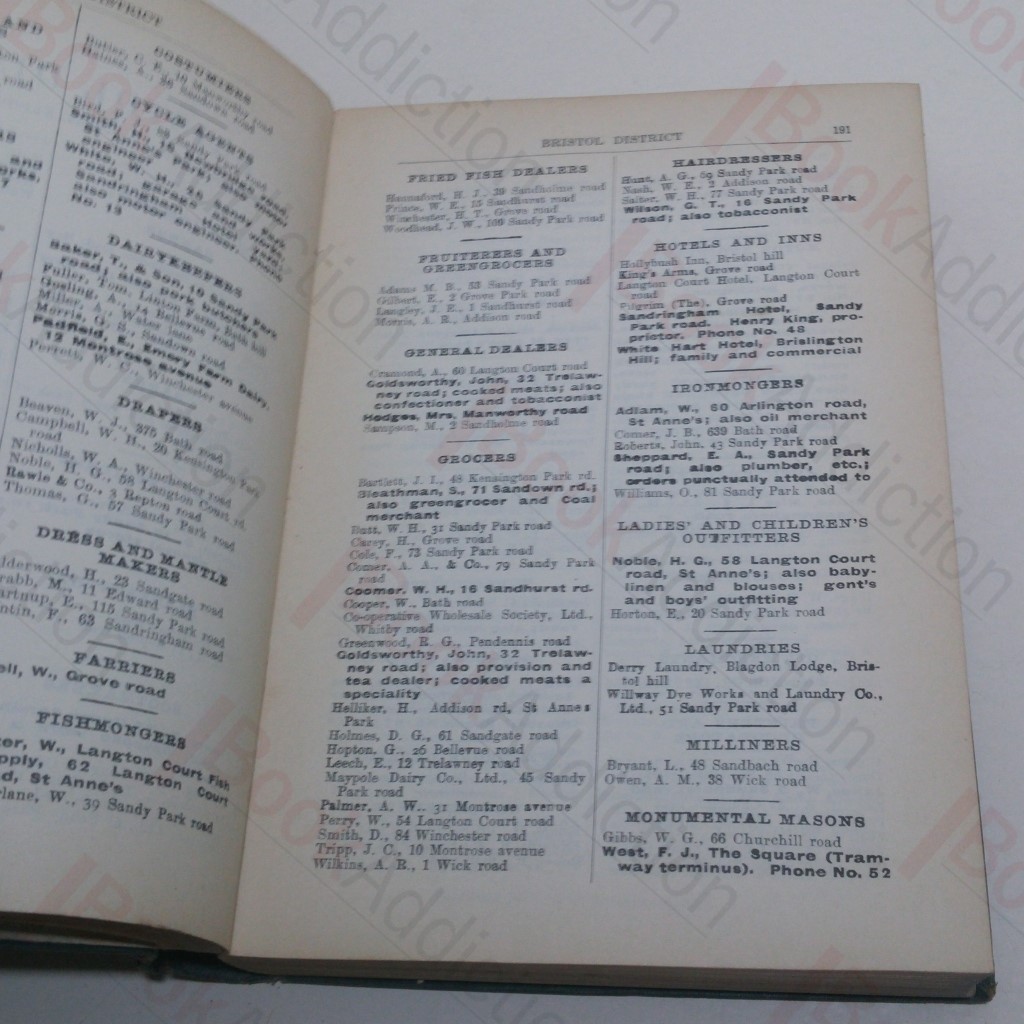 DISTRICT
AND
Park
road
and
works,
COSTUMIERS
Butler, C. E., 10 Manworthy road
Haines, A., 26 Sandown road
CYCLE AGENTS
road
Smith, H.
St Anne's Park; also motor
engineer
White, W. H., 25 Sandy Park
road; garage and works,
Sandringham
also motor engineer. Phone
No. 13
DAIRYKEEPERS
Baker, T., & Son, 10 Sandy Park
road; also pork butchers
Fuller, Tom, Linton Farm, Bath hill
Gosling, A., 14 Bellevue road
Miller, Water lane
Morris, G. E., Sandown road
Padfield, E., Emery Farm Dairy,
12 Montrose avenue
Perrett, W. C., Winchester avenue
DRAPERS
Beaven, W. J., 375 Bath road
Campbell, W. H., 20 Kensington Park
road
Nicholls, W. A., Winchester road
Noble, H. G., 58 Langton Court rd.
Rawle & Co., 3 Repton road
Thomas, G., 57 Sandy Park road
DRESS AND MANTLE
MAKERS
derwood, H., 23 Sandgate road
rabb, M., 11 Edward road
artnup, E., 115 Sandy Park road
ntin, F., 63 Sandringham road
FARRIERS
ell, W., Grove road
FISHMONGERS
er, W., Langton Court Fish
pply, 62 Langton Court
d, St Anne's
lane, W., 39 Sandy Park road
BRISTOL DISTRICT
191
FRIED FISH DEALERS
Hannaford, H. J., 39 Sandholme road
Prince, W. E., 15 Sandhurst road
Winchester, H. T., Grove road
Woodhead, J. W., 109 Sandy Park road
FRUITERERS AND
GREENGROCERS
Adams M. B., 53 Sandy Park road
Gilbert, E., 2 Grove Park road
Langley, J. E., 1 Sandhurst road
Morris, A. R., Addison road
GENERAL DEALERS
Cramond, A., 60 Langton Court road
Goldsworthy, John, 32 Trelaw-
ney road; cooked meats; also
confectioner and tobacconist
Hedges, Mrs, Manworthy road
Sampson, M., 2 Sandholme road
GROCERS
Bartlett, J. I., 48 Kensington Park rd.
Bleathman, S., 71 Sandown rd.;
also greengrocer and Coal
merchant
Butt, W. H., 31 Sandy Park road
Carey, H., Grove road
Cole, F., 73 Sandy Park road
Comer, A. A., & Co., 79 Sandy Park
road
Coomer, W. H., 16 Sandhurst rd.
Cooper, W., Bath road
Co-operative Wholesale Society, Ltd.,
Whitby road
Greenwood, R. G., Pendennis road
Goldsworthy, John, 32 Trelaw-
ney road; also provision and
tea dealer; cooked meats a
speciality
Helliker, H., Addison rd, St Annes
Park
Holmes, D. G., 61 Sandgate road
Hopton, G., 26 Bellevue road
Leech, E., 12 Trelawney road
Maypole Dairy Co., Ltd., 45 Sandy
Park road
Palmer, A. W., 31 Montrose avenue
Perry, W., 54 Langton Court road
Smith, D., 84 Winchester road
Tripp, J. C., 10 Montrose avenue
Wilkins, A. R., 1 Wick road
HAIRDRESSERS
Hunt, A. G., 69 Sandy Park road
Nash, W. E., 2 Addison road
Salter, W. H., 77 Sandy Park road
Wilson, G. T., 16 Sandy Park
road; also tobacconist
HOTELS AND INNS
Hollybush Inn, Bristol hill
King's Arms, Grove road
Langton Court Hotel, Langton Court
road
Pilgrim (The), Grove road
Sandringham Hotel, Sandy
Park road. Henry King, pro-
prietor. Phone No. 48
White Hart Hotel, Brislington
Hill; family and commercial
IRONMONGERS
Adlam, W., 60 Arlington road,
St Anne's; also oil merchant
Comer, J. B., 639 Bath road
Roberts, John, 43 Sandy Park road
Sheppard, E. A., Sandy Park
road; also plumber, etc.;
orders punctually attended to
Williams, O., 81 Sandy Park road
LADIES' AND CHILDREN'S
OUTFITTERS
Noble, H. G., 58 Langton Court
road, St Anne's; also baby-
linen and blouses; gent's
and boys' outfitting
Horton, E., 20 Sandy Park road
LAUNDRIES
Derry Laundry, Blagdon Lodge, Bris-
tol hill
Willway Dye Works and Laundry Co.,
Ltd., 51 Sandy Park road
MILLINERS
Bryant, L., 48 Sandbach road
Owen, A. M., 38 Wick road
MONUMENTAL MASONS
Gibbs, W. G., 66 Churchill road
West, F. J., The Square (Tram-
way terminus). Phone No. 52
BookAddiction